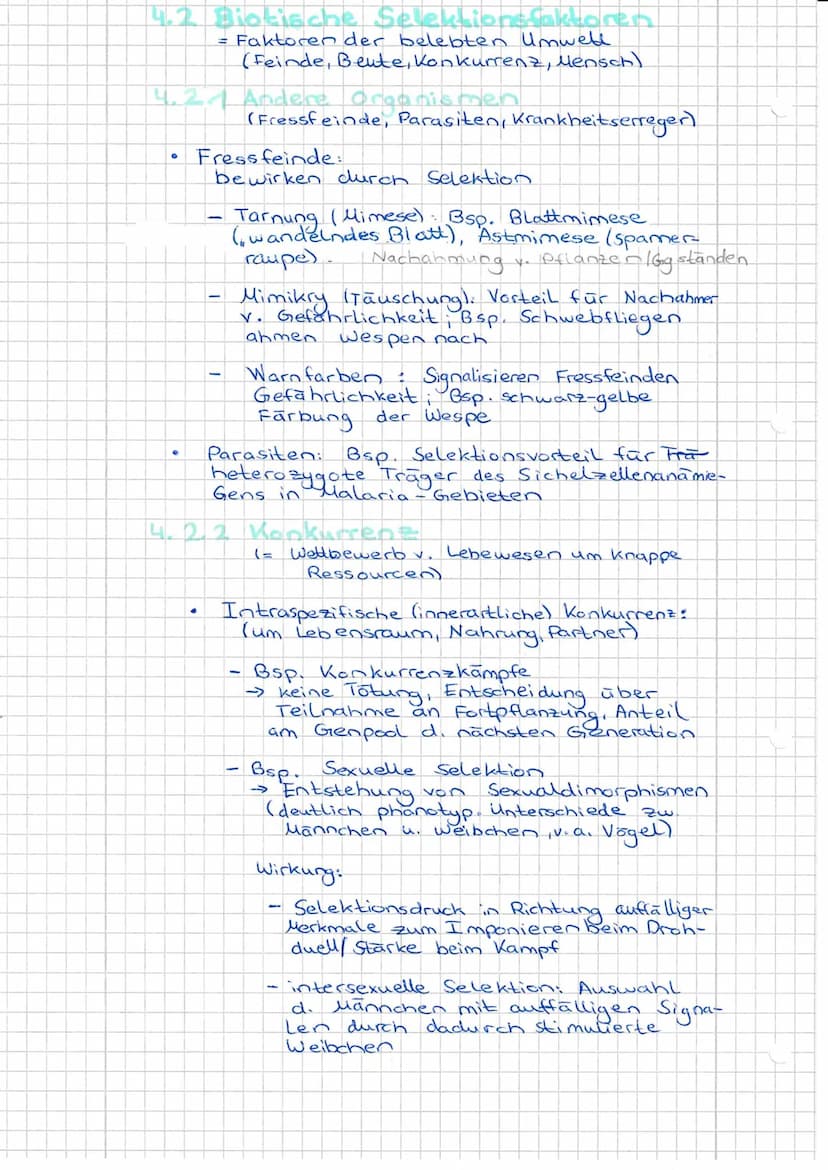 4.2 Biotische Selektionsfaktoren
= Faktoren der belebten Umwelt
(Feinde, Beute, Konkurrenz, Mensch)
4.2.1 Andere Organismen
(Fressfeinde, Parasiten, Krankheitserreger)
• Fressfeinde:
bewirken durch Selektion
- Tarnung (Mimese): Bsp. Blattmimese
(„wandelndes Blatt), Astmimese (spanner-
raupe). Nachahmung v. Pflanzen/Ggständen
- Mimikry (Täuschung): Vorteil für Nachahmer
v. Gefährlichkeit; Bsp. Schwebfliegen
ahmen Wespen nach
- Warnfarben: Signalisieren Fressfeinden
Gefährlichkeit; Bsp. schwarz-gelbe
Färbung der Wespe
• Parasiten: Bsp. Selektionsvorteil für Trä
heterozygote Träger des Sichelzellenanämie-
Gens in Malaria-Gebieten
4.2.2 Konkurrenz
(= Wettbewerb v. Lebewesen um knappe
Ressourcen)
• Intraspezifische (innerartliche) Konkurrenz:
(um Lebensraum, Nahrung, Partner)
- Bsp. Konkurrenzkämpfe
→ keine Tötung, Entscheidung über
Teilnahme an Fortpflanzung, Anteil
am Genpool d. nächsten Generation
- Bsp. Sexuelle Selektion
→ Entstehung von Sexualdimorphismen
(deutlich phänotyp. Unterschiede zw.
Männchen u. Weibchen, v.a. Vögel)
Wirkung:
- Selektionsdruck in Richtung auffälliger
Merkmale zum Imponieren beim Droh-
duell/Stärke beim Kampf
- intersexuelle Selektion: Auswahl
d. Männchen mit auffälligen Signa-
len durch dadurch stimulierte
Weibchen